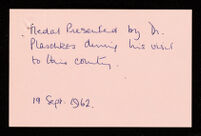 Medal Presented by Dr.
Plaschkes during his visit
to this country.
19 Sept. 1962.